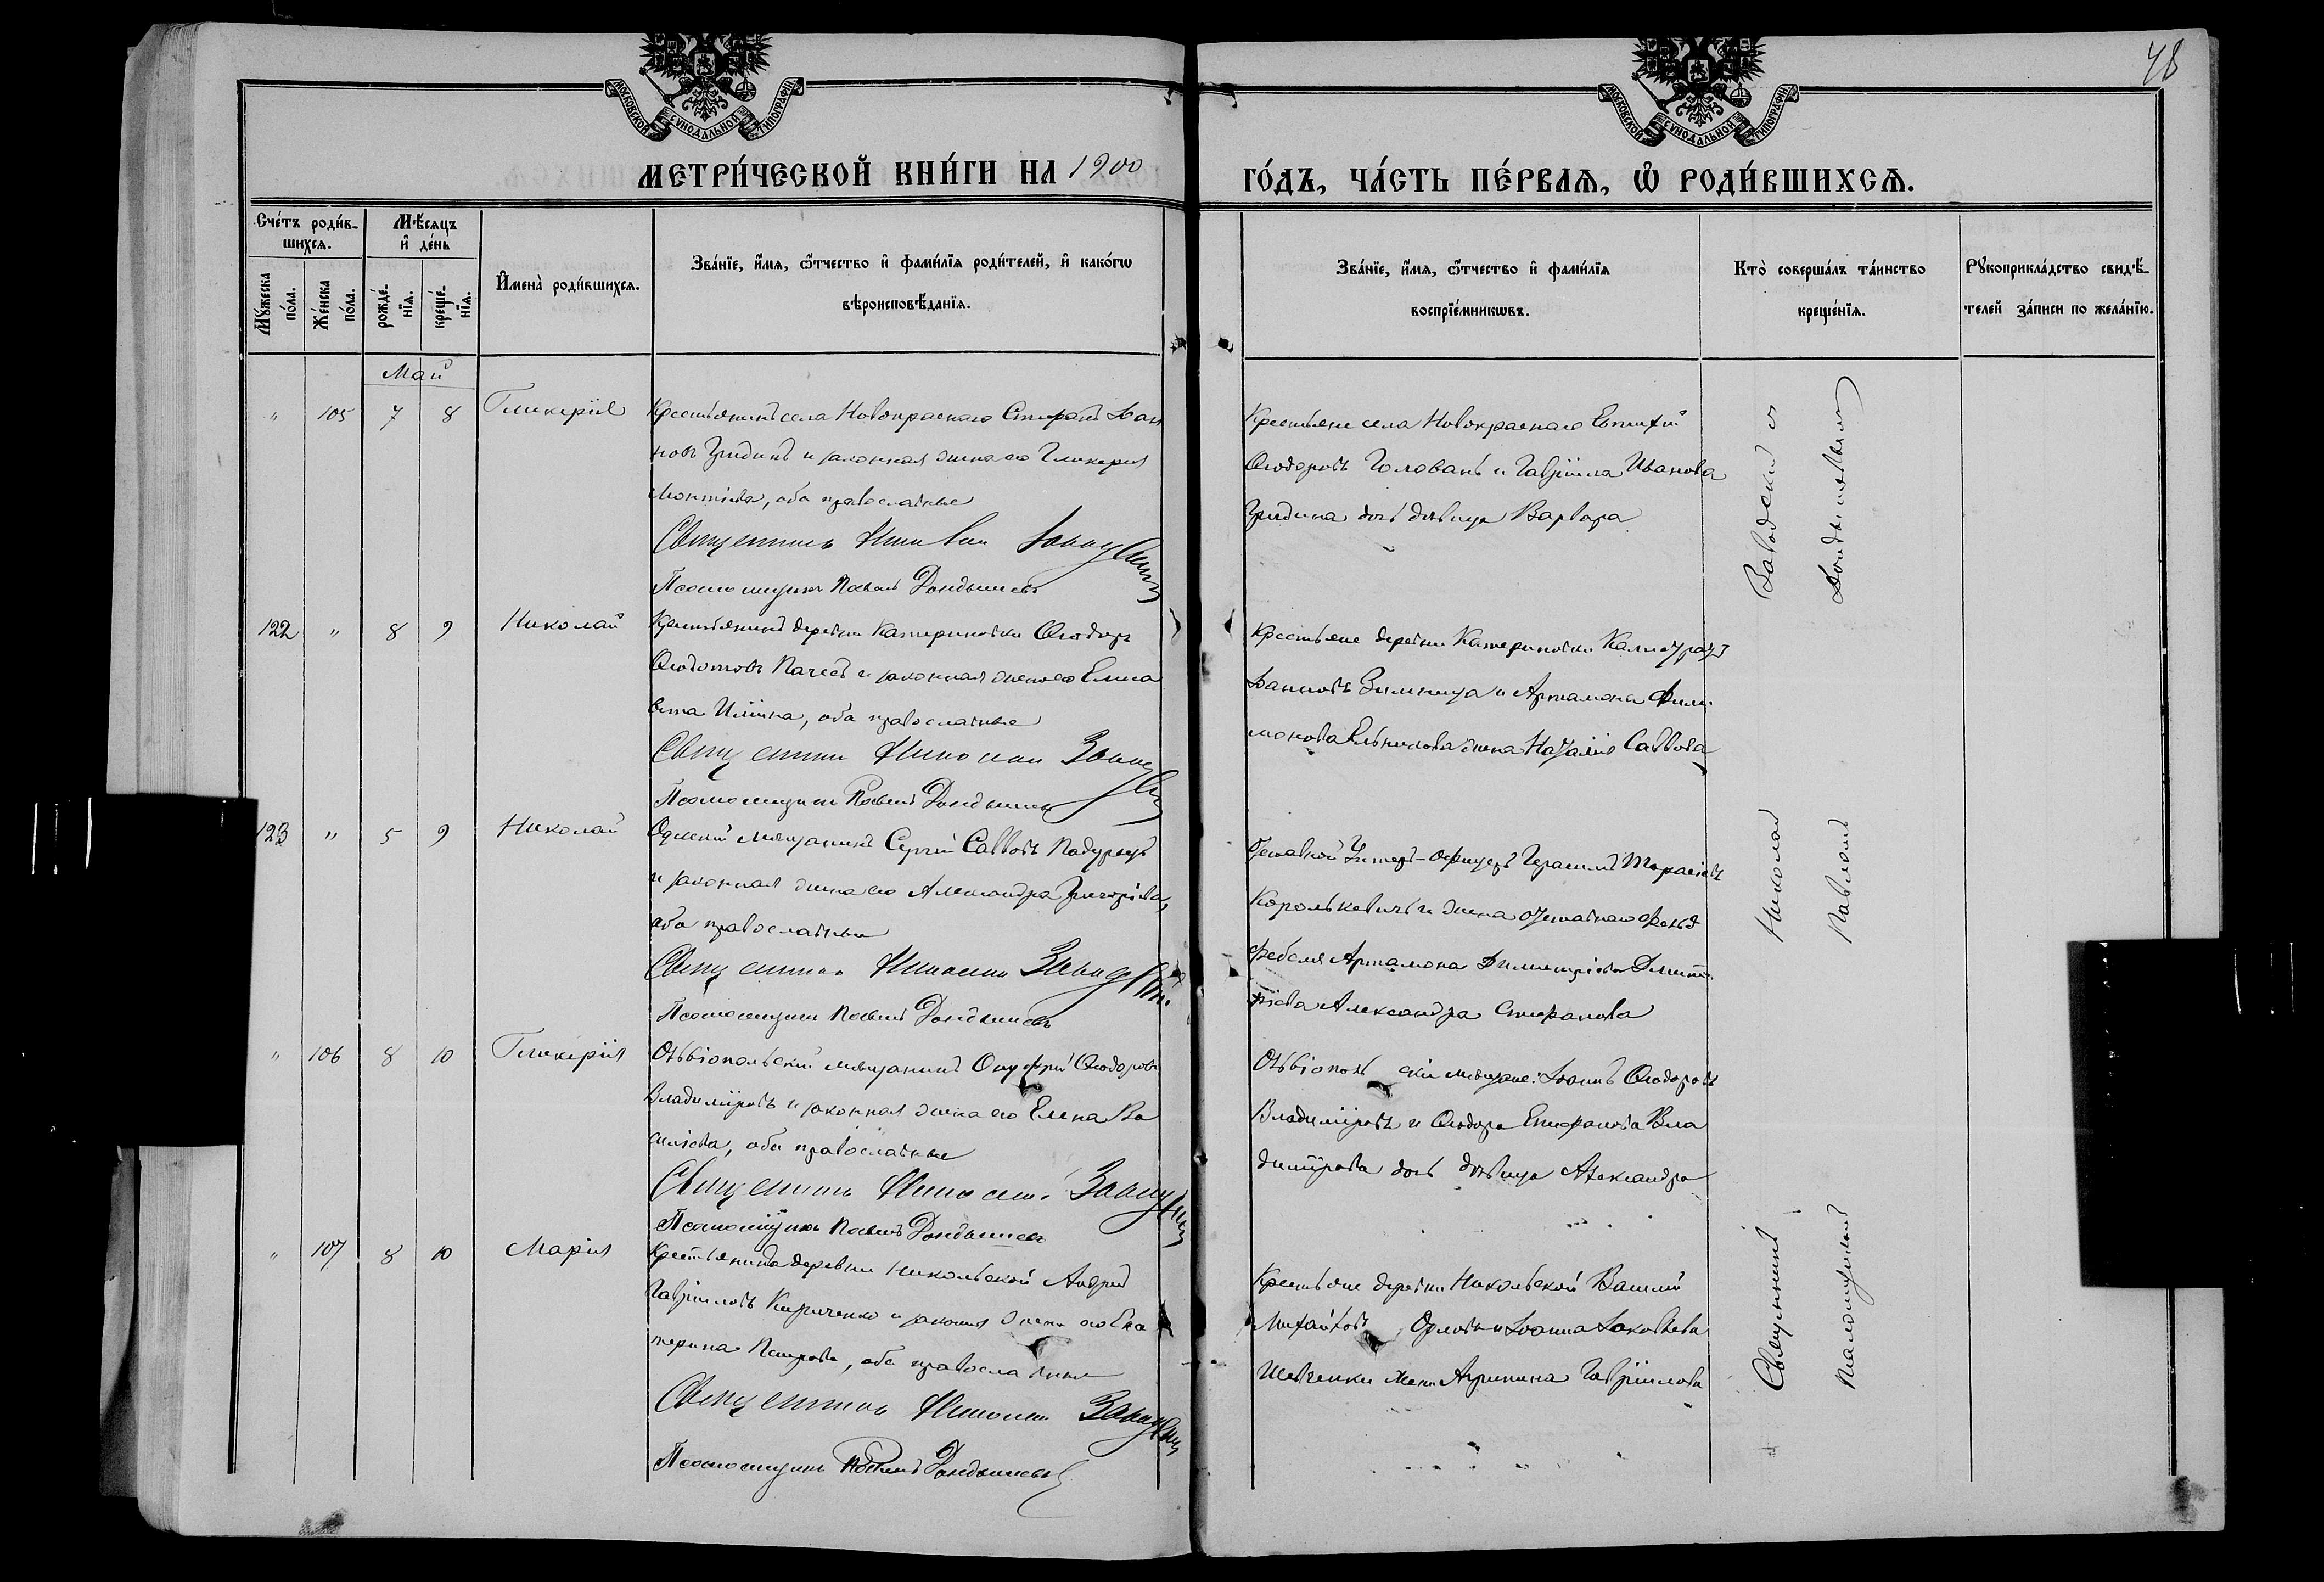 48
МОСКОВСКОЙ СѴНОДАЛЬНОЙ ТИПОГРАФІИ
МОСКОВСКОЙ СѴНОДАЛЬНОЙ ТИПОГРАФІИ
МЕТРИ́ЧЕСКОЙ КНИ́ГИ НА 1900
ГО́ДЪ, ЧА́СТЬ ПЕ́РВАѦ, Ѡ҆ РОДИ́ВШИХСѦ.
Сче́тъ роди́в-
шихсѧ.
Мѣ́сяцъ
и҆ де́нь
Мꙋ́жеска
по́ла.
Же́нска
по́ла.
рожде́-
нїѧ.
креще́-
нїѧ.
И҆мена̀ роди́вшихсѧ.
Зва́нїе, и҆́мѧ, ѻ҆́тчество и҆ фами́лїѧ роди́телей, и҆ како́гѡ
вѣроисповѣ́данїѧ.
Зва́нїе, и҆́мѧ, ѻ҆́тчество и҆ фами́лїѧ
воспрїе́мникѡвъ.
Кто̀ соверша́лъ та́инство
креще́нїѧ.
Рꙋкоприкла́дство свидѣ́-
телей за́писи по жела́нїю.
Май
" 105 7 8 Гликерія
Крестьянинъ села Новокраснаго Стефанъ Іоан
новъ Гридинъ и законная жена его Гликерія
оба православные
Священникъ Николай Заводскій
Псаломщикъ Павелъ Дондышевъ
Крестьяне села Новокраснаго Евтихій
Ѳеодоровъ Голованъ и Гавріила Иванова
Гридина дочь дѣвица Варвара
122 " 8 9 Николай
Крестьянинъ деревни Катериновки Ѳеодоръ
Ѳедотовъ и законная жена его Елиса
вета Ильина, оба православные
Священникъ Николай Заводскій
Псаломщикъ Павелъ Дондышевъ
Крестьяне деревни Катериновки
Іоанновъ Зимница и Артамона Фили
монова жена Наталія Саввова
123 " 5 9 Николай
Одесскій мѣщанинъ Сергій Саввовъ Падурецъ
и законная жена его Александра Григоріева,
оба православные
Священникъ Николай Заводскій
Псаломщикъ Павелъ Дондышевъ
Отставной Унтеръ-офицеръ Герасимъ Тарасіевъ
Королькевичъ и жена отставного Фельд
фебеля Артамона Димитріева Димит
ріева Александра Стефанова
" 106 8 10 Гликерія
Ольвіопольскій мѣщанинъ Онуфрій Ѳеодоровъ
Владиміровъ и законная жена его Елена Ва
силіева, оба православные
Священникъ Николай Заводскій
Псаломщикъ Павелъ Дондышевъ
Ольвіопольскіе мѣщане: Іоаннъ Ѳеодоровъ
Владиміровъ и Ѳеодора Стефанова Вла
димірова дочь дѣвица Александра
" 107 8 10 Марія
Крестьянинъ деревни Никольской Андрей
Гавріиловъ Кириченко и законная жена его Ека
терина Петрова, оба православные
Священникъ Николай Заводскій
Псаломщикъ Павелъ Дондышевъ
Крестьяне деревни Никольской Василій
Михайловъ Орловъ и Іоанна Іаковлева
Шевченки жена Агрипина Гавріилова
Священникъ Николай Заводскій и
Псаломщикъ Павломъ Дондышевымъ